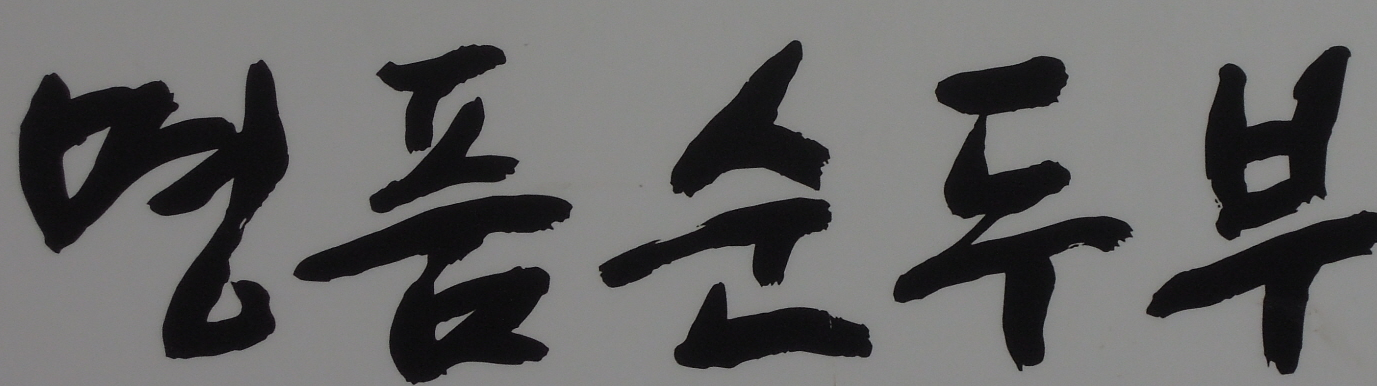 명품순두부